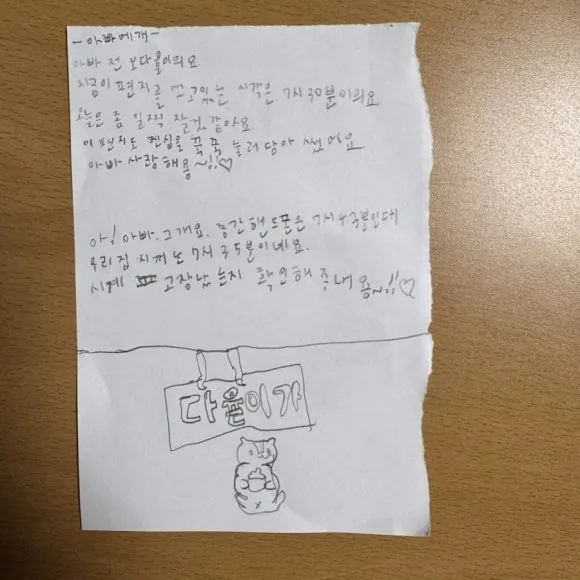 - 아빠에개 -
아빠 전 보다율이의요
지금이 편지를 쓰고있는 시각은 7시30분이의요
오늘은 좀 일찍 잘것같아요
이 편지도 진심을 꾹꾹 눌러 담아 썼어요
아빠 사랑해용~!!♡
아! 아빠. 그개요. 중간 핸드폰은 7시 인데
우리집 시개는 7시 35분이네요.
시계 고장났는지 확인해 주새용~!!♡
다율이가